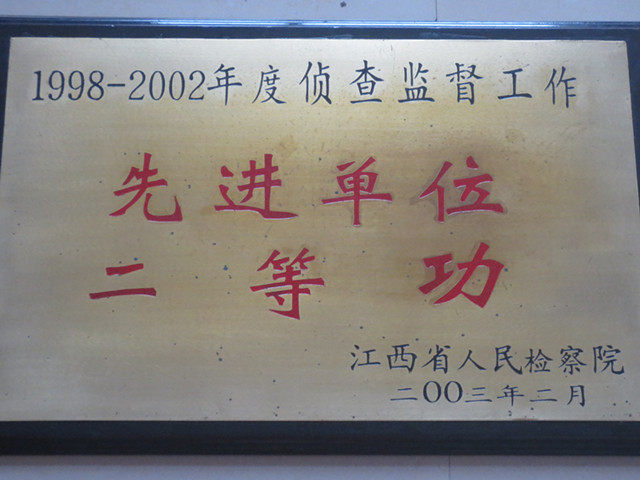 1998-2002年度侦查监督工作
先进单位
二等功
江西省人民检察院
二〇〇三年二月